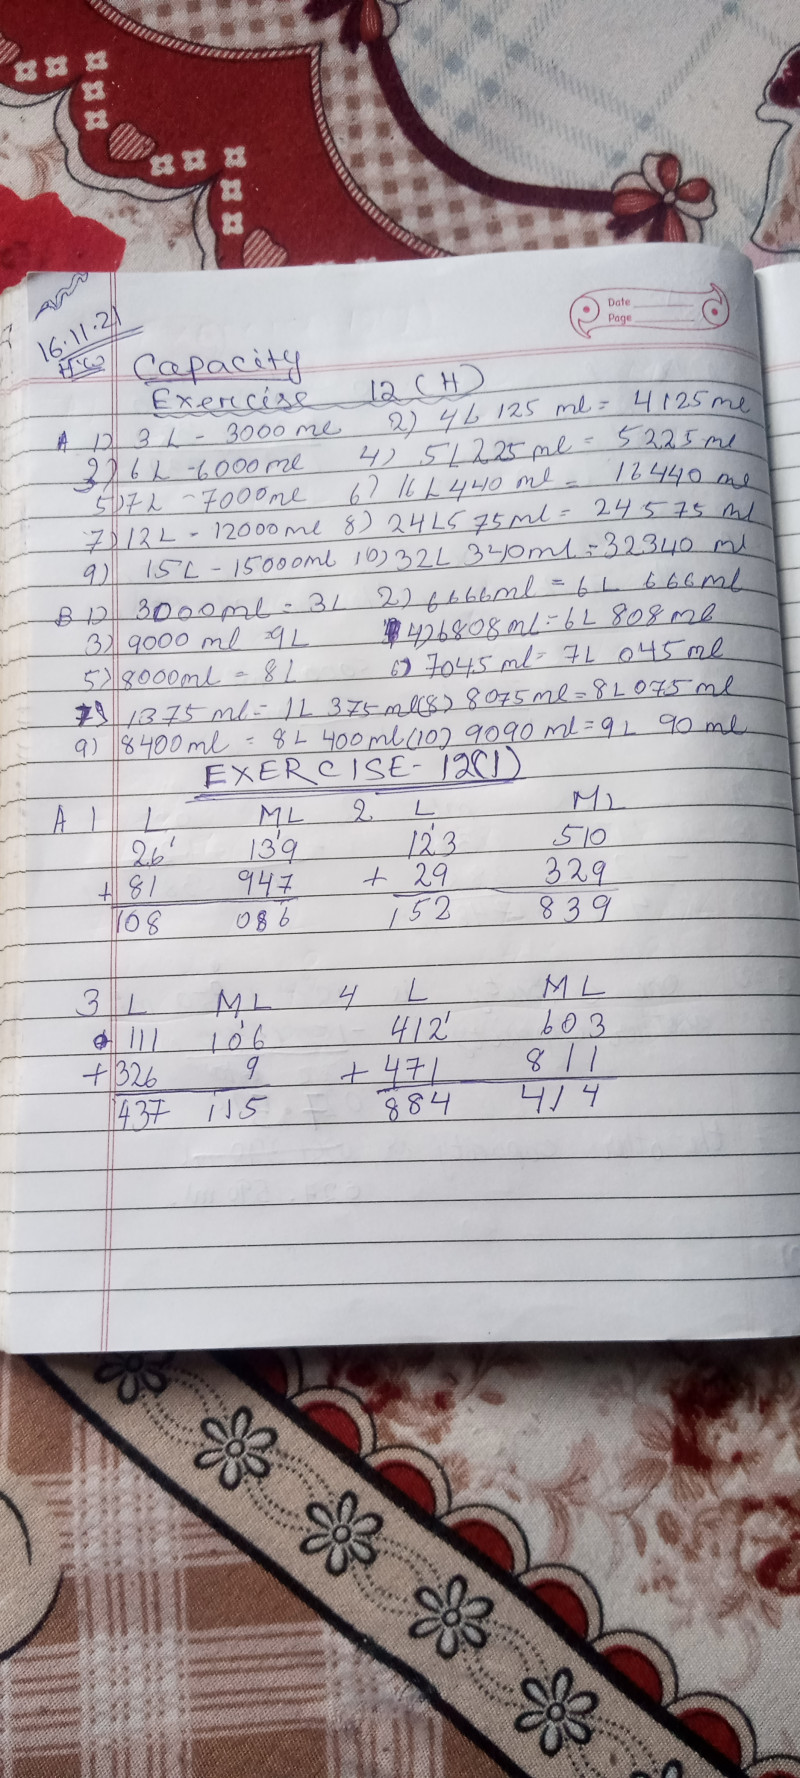 Date
Page
16.11.21
H.W
Capacity
Exercise 12 (H)
A 1) 3 L - 3000 ml 2) 4L 125 ml = 4125 ml
3) 6 L - 6000 ml 4) 5L 225 ml = 5225 ml
5) 7L - 7000 ml 6) 16 L 440 ml = 16440 ml
7) 12L - 12000 ml 8) 24L 575 ml = 24575 ml
9) 15L - 15000 ml 10) 32L 340 ml = 32340 ml
B 1) 3000 ml = 3L 2) 6666 ml = 6L 666 ml
3) 9000 ml = 9L 4) 6808 ml = 6L 808 ml
5) 8000 ml = 8L 6) 7045 ml = 7L 045 ml
7) 1375 ml = 1L 375 ml (8) 8075 ml = 8L 075 ml
9) 8400 ml = 8L 400 ml (10) 9090 ml = 9L 90 ml
EXERCISE - 12(I)
A 1 L ML 2 L ML
26 139 123 510
+ 81 947 + 29 329
108 086 152 839
3 L ML 4 L ML
111 106 412 603
+ 326 9 + 471 811
437 115 884 414